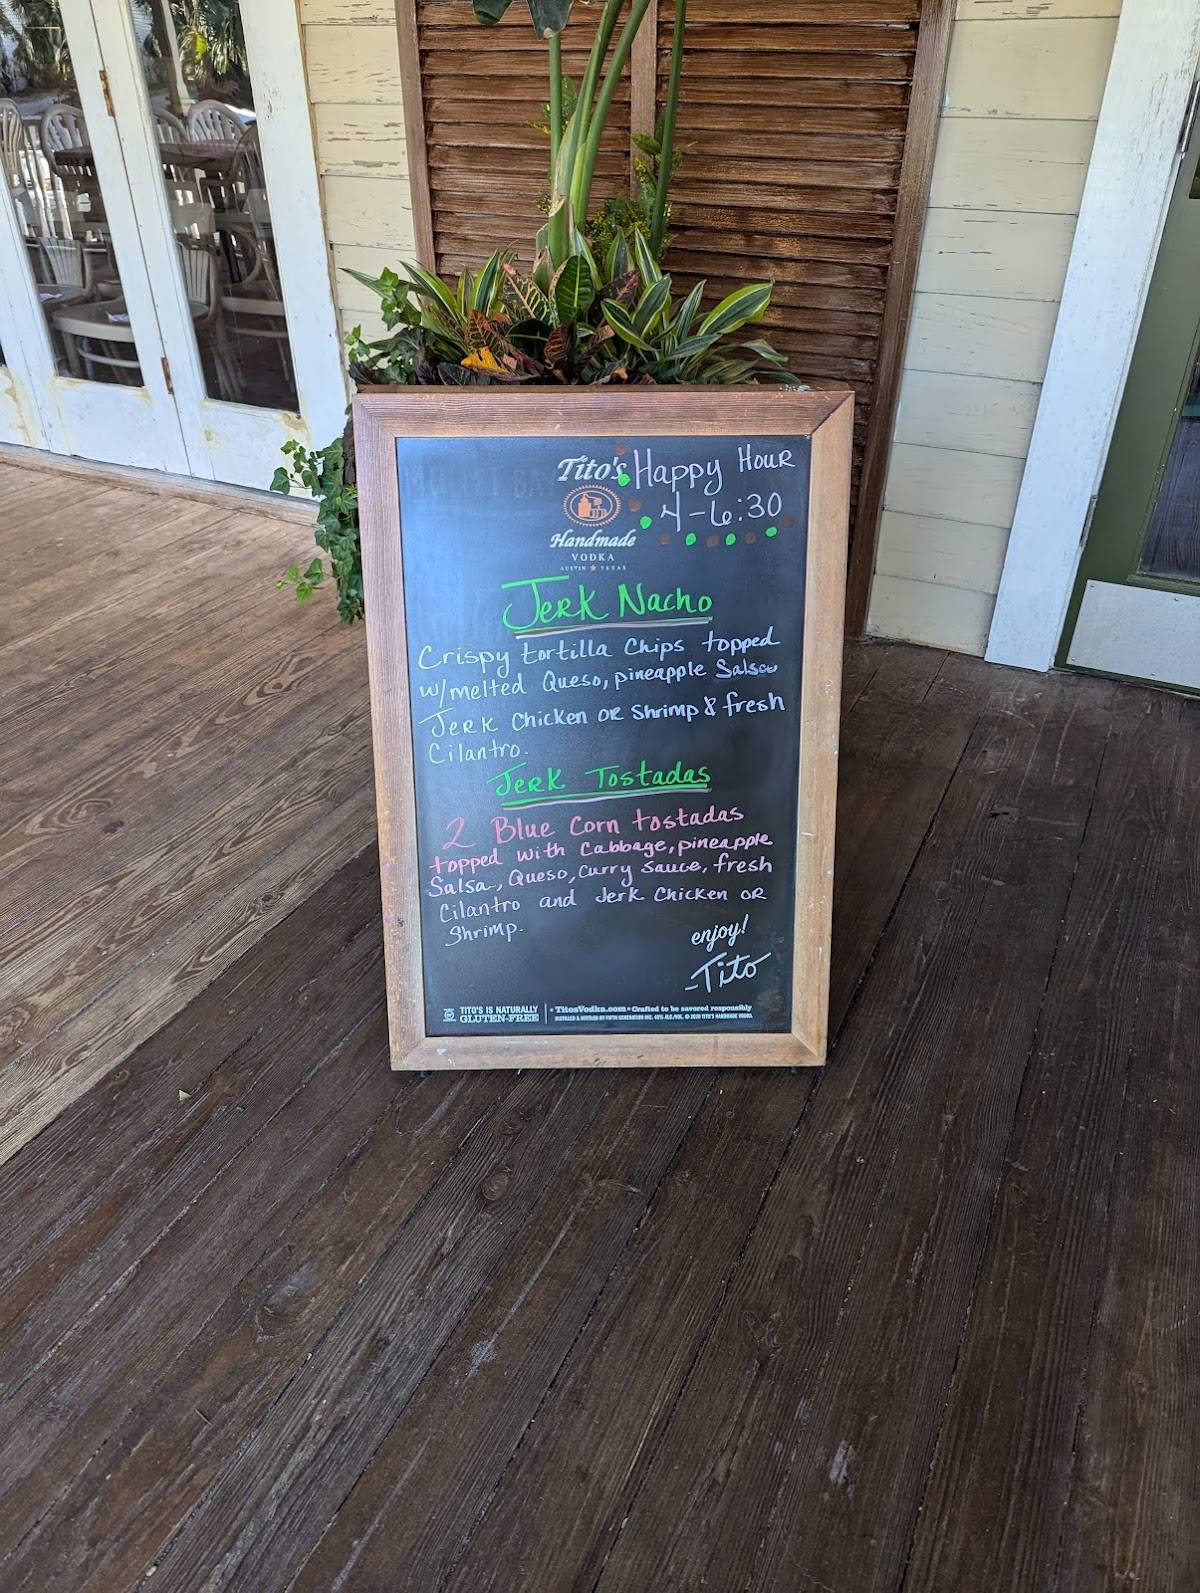 Tito's
Handmade
VODKA
AUSTIN TEXAS
Happy Hour
4-6:30
Jerk Nacho
Crispy tortilla Chips topped
w/melted Queso, pineapple Salsa
Jerk Chicken or Shrimp & fresh
Cilantro.
Jerk Tostadas
2 Blue Corn tostadas
topped with Cabbage, pineapple
Salsa, Queso, Curry Sauce, fresh
Cilantro and Jerk Chicken or
Shrimp.
enjoy!
-Tito
TITO'S IS NATURALLY
GLUTEN-FREE
• TitosVodka.com • Crafted to be savored responsibly
DISTILLED & BOTTLED BY FIFTH GENERATION INC. 40% ALC./VOL. © 2020 TITO'S HANDMADE VODKA.